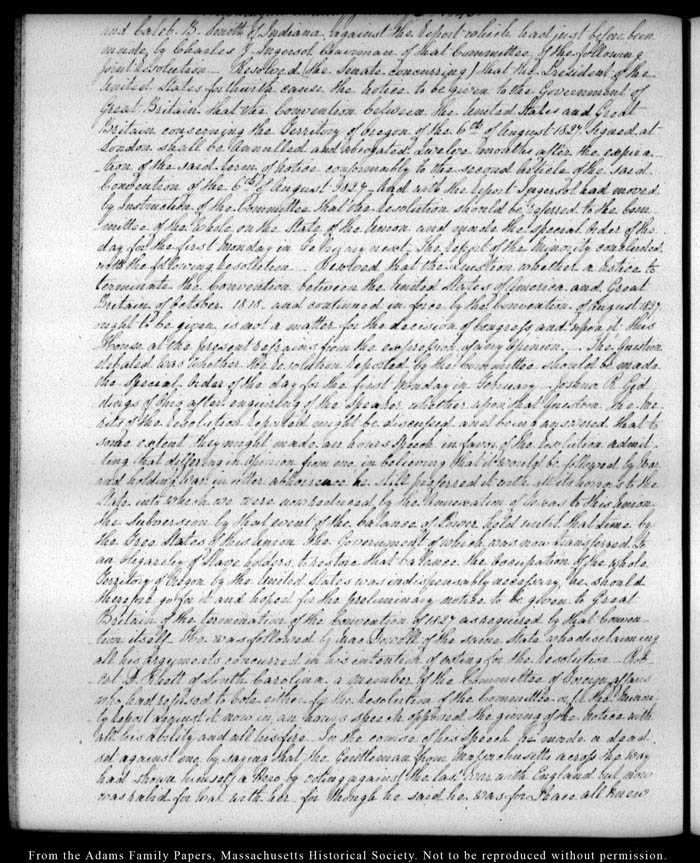 and Caleb B. Smith of Indiana against the report which had just before been
made, by Charles J. Ingersol Chairman of that Committee of the following
joint resolution— Resolved (the Senate concurring) that the President of the
United States forthwith cause the notice to be given to the Government of
Great Britain that the Convention between the United States and Great
Britain concerning the Territory of Oregon of the 6th of August 1827 Signed at
London shall be annulled and abrogated Twelve months after the expira-
tion of the said term of notice conformably to the second Article of the said
Convention of the 6th of August 1827— And with the report Ingersol had moved
by Instruction of the Committee that the resolution should be referred to the Com-
mittee of the whole on the State of the Union and made the special Order of the
day for the first Monday in February next. The report of the minority concluded
with the following resolution— Resolved that the Question whether a Notice to
terminate the Convention between the United States of America and Great
Britain of October 1818— and continued in force by the Convention of August 1827
ought to be given is not a matter for the decision of Congress and upon it this
House at the present refrains from the expression of any opinion— The Question
debated was whether the resolution reported by the Committee should be made
the special Order of the day for the first Monday in February— Joshua R. Gid-
dings of Ohio after enquiring of the Speaker whether upon that Question the me-
rits of the resolution reported might be discussed and being answered that to
some extent they might made an hours Speech in favor of the resolution admit-
ting that differing in opinion from me in believing that it would be followed by War
and holding War in utter abhorrence he still preferred it with all its horrors to the
State into which we were now reduced by the Annexation of Texas to this Union
the Subversion by that event of the balance of Power held until that time by
the Free States of this Union the Government of which was now transferred to
an oligarchy of Slave holders to restore that balance the Occupation of the whole
Territory of Oregon by the United States was indispensably necessary, he should
therefore go for it and hoped for the preliminary notice to be given to Great
Britain of the termination of the Convention of 1827 as required by that Conven-
tion itself— He was followed by MacDowell of the same State who disclaiming
all his arguments concurred in his intention of voting for the resolution— Rob-
ert B. Rhett of South Carolina a member of the Committee of Foreign Affairs
who had refused to vote either for the Resolution of the Committee or for the minori-
ty report against it now in an hours speech opposed the giving of the notice with
all his ability and all his fire. In the course of his speech he made a dead
set against me, by saying that the Gentleman from Massachusetts across the way
had shown himself a Hero by voting against the last War with England but now
was rabid for War with her— for though he said he was for Peace all knew
From the Adams Family Papers, Massachusetts Historical Society. Not to be reproduced without permission.